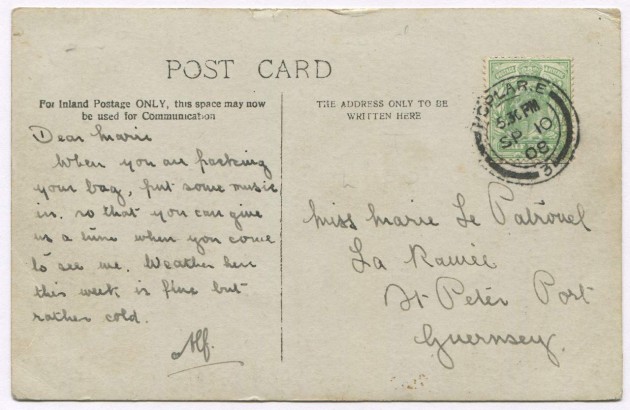 POST CARD
For Inland Postage ONLY, this space may now
be used for Communication
THE ADDRESS ONLY TO BE
WRITTEN HERE
POPLAR. E
5.30 PM
SP 10
09
3
Dear Marie
When you are packing
your bag, put some music
in. so that you can give
us a tune when you come
to see me. Weather here
this week is fine but
rather cold.
Alf.
Miss Marie Le Patrouel
La Ramée
St Peter Port
Guernsey.